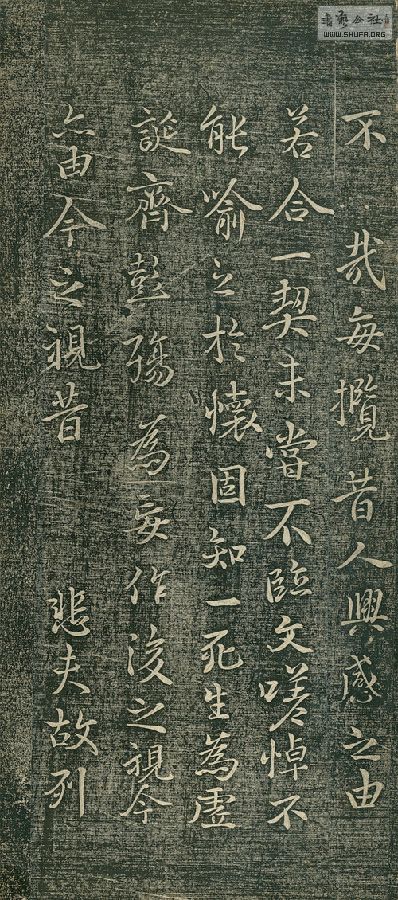 不 哉每攬昔人興感之由
若合一契未嘗不臨文嗟悼不
能喻之於懷固知一死生為虛
誕齊彭殤為妄作後之視今
亦由今之視昔 悲夫故列
WWW.SHUFA.ORG